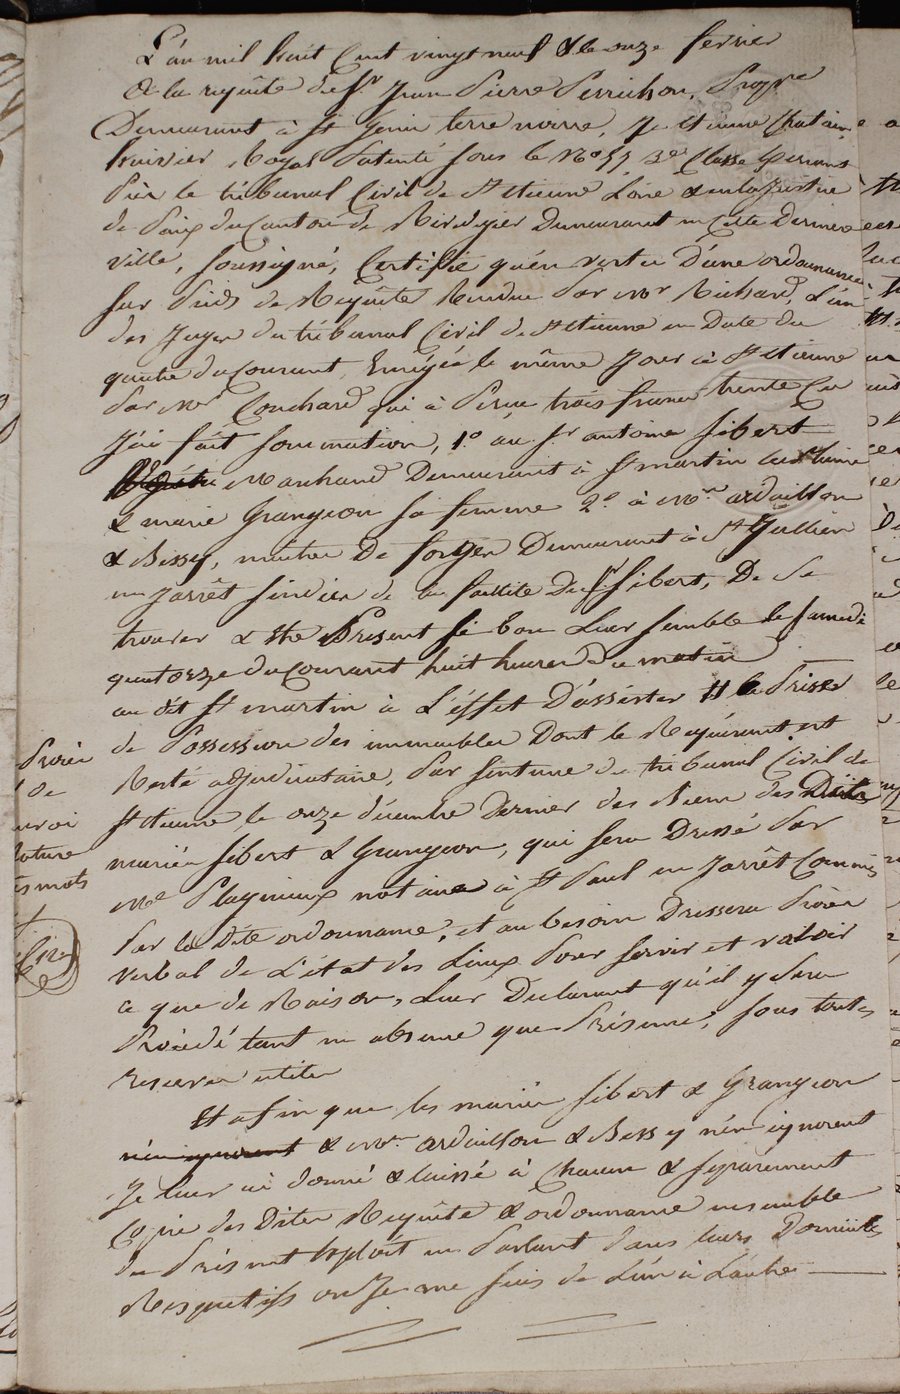 L'an mil huit Cent vingt neuf & le onze fevrier
à la requête de Sr Jean Pierre Perrichon, Propre
Demeurant à St Genis terre noire, Je Etienne
huissier Royal Patenté sous le No 55 3e Classe
Près le tribunal Civil de St Etienne Loire & en la Justice
de Paix du Canton de Rivedgier Demeurant en Cette Derniere
ville, soussigné, Certifie qu'en vertu D'une ordonnance
sur Pieds de Requête Rendue Par Mr Richard, L'un
des Juges du tribunal Civil de St Etienne en Date du
quatre du Courant, Enrégée le même Jour à St Etienne
Par Mr Couchard qui à Perçu trois francs trente Cin
J'ai fait sommation, 1o au Sr antoine Sibert
Marchand Demeurant à St martin
& marie Grangeon sa femme 2o à Mrs ardaillon
& Bessy, maitres De forges Demeurant à St Jullien
en Jarrêt sindics de la faillite Du Sr Sibert, De se
trouver & être Présent si bon Leur semble le samedi
quatorze du Courant huit heures du matin
au dit St martin à L'éffet D'assister à la Prise
de Possession des immeubles Dont le Requérant est
Resté adjudicataire, Par sentence du tribunal Civil de
St Etienne le onze décembre Dernier des Biens des Dits
mariés Sibert & Grangeon, qui sera Dressé Par
Me Plagnieux notaire à St Paul en Jarrêt Commis
Par la Dite ordonnance, et au besoin Dressera Procès
verbal de L'état des Lieux Pour servir et valoir
ce que de Raison, Leur Declarant qu'il y sera
Procédé tant en absence que Présence, sous toutes
reserves utiles
Et afin que les mariés Sibert & Grangeon
n'en ignorent & Mrs ardaillon & Bessy n'en ignorent
Je leur ai donné & laissé à Chacun & séparément
Copie des Dites Requête & ordonnance ensemble
du Présent Exploit en Parlant Dans leurs Domiciles
Respectifs ou Je me suis de L'un à L'autre
Procès
de
ature
mots